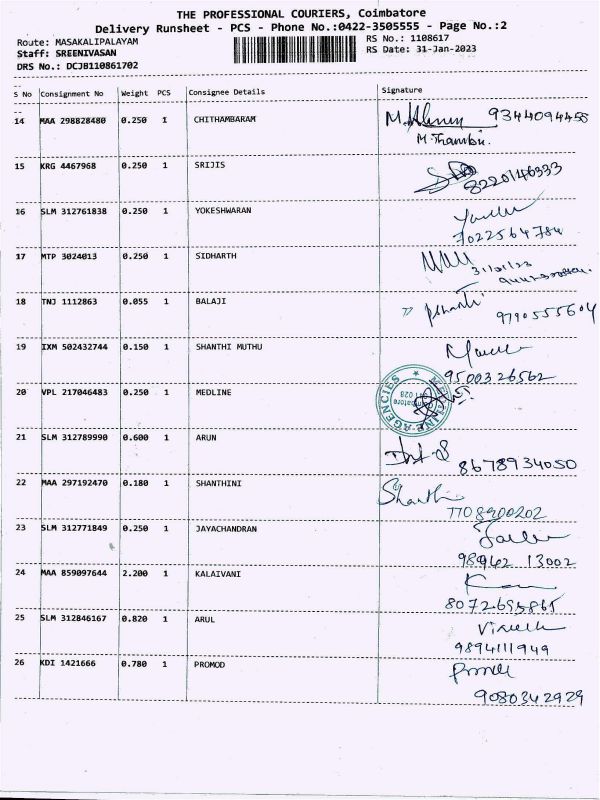 THE PROFESSIONAL COURIERS, Coimbatore
Delivery Runsheet - PCS - Phone No.:0422-3505555 - Page No.:2
Route: MASAKALIPALAYAM RS No.: 1108617
Staff: SREENIVASAN RS Date: 31-Jan-2023
DRS No.: DCJB110861702
S No Consignment No Weight PCS Consignee Details Signature
14 MAA 298828480 0.250 1 CHITHAMBARAM 9344094458
M.Thambi.
15 KRG 4467968 0.250 1 SRIJIS
8220146333
16 SLM 312761838 0.250 1 YOKESHWARAN
7022564784
17 MTP 3024013 0.250 1 SIDHARTH
31/01/23
18 TNJ 1112863 0.055 1 BALAJI
9790555604
19 IXM 502432744 0.150 1 SHANTHI MUTHU
9500326562
20 VPL 217046483 0.250 1 MEDLINE
MEDLINE AGENCIES
21 SLM 312789990 0.600 1 ARUN
8678934050
22 MAA 297192470 0.180 1 SHANTHINI Shanthi
7708900202
23 SLM 312771849 0.250 1 JAYACHANDRAN
98942 13002
24 MAA 859097644 2.200 1 KALAIVANI
8072695865
25 SLM 312846167 0.820 1 ARUL
9894111949
26 KDI 1421666 0.780 1 PROMOD
9080342929